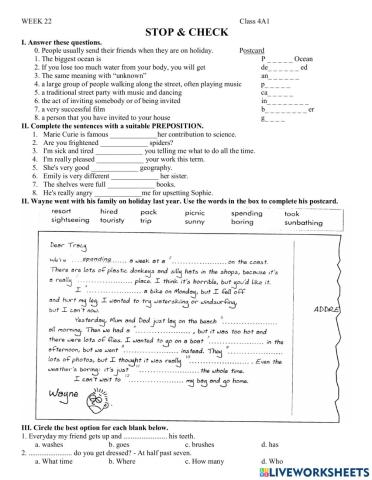 WEEK 22 Class 4A1
STOP & CHECK
I. Answer these questions.
0. People usually send their friends when they are on holiday. Postcard
1. The biggest ocean is P_ _ _ _ _ _ Ocean
2. If you lose too much water from your body, you will get de_ _ _ _ _ ed
3. The same meaning with “unknown” an_ _ _ _ _ _
4. a large group of people walking along the street, often playing music p_ _ _ _ _
5. a traditional street party with music and dancing ca_ _ _ _ _
6. the act of inviting somebody or of being invited in_ _ _ _ _ _ _ _
7. a very successful film b_ _ _ _ _ _ _ _ er
8. a person that you have invited to your house g_ _ _ _
II. Complete the sentences with a suitable PREPOSITION.
1. Marie Curie is famous ____________ her contribution to science.
2. Are you frightened ____________ spiders?
3. I'm sick and tired ____________ you telling me what to do all the time.
4. I'm really pleased ____________ your work this term.
5. She's very good ____________ geography.
6. Emily is very different ____________ her sister.
7. The shelves were full ____________ books.
8. He's really angry ____________ me for upsetting Sophie.
II. Wayne went with his family on holiday last year. Use the words in the box to complete his postcard.
resort hired pack picnic spending took
sightseeing touristy trip sunny boring sunbathing
Dear Tracy
We're ....spending.... a week at a 1.................. on the coast.
There are lots of plastic donkeys and silly hats in the shops, because it's
a really 2.................. place. I think it's horrible, but you'd like it.
I 3.................. a bike on Monday, but I fell off
and hurt my leg. I wanted to try waterskiing or windsurfing,
but I can't now.
ADDRE
Yesterday, Mum and Dad just lay on the beach 4..................
all morning. Then we had a 5.................., but it was too hot and
there were lots of flies. I wanted to go on a boat 6.................. in the
afternoon, but we went 7.................. instead. They 8..................
lots of photos, but I thought it was really 9.................. . Even the
weather's boring: it's just 10.................. the whole time.
I can't wait to 11.................. my bag and go home.
Wayne
III. Circle the best option for each blank below.
1. Everyday my friend gets up and .................. his teeth.
a. washes b. goes c. brushes d. has
2. .................. do you get dressed? - At half past seven.
a. What time b. Where c. How many d. Who
LIVEWORKSHEETS